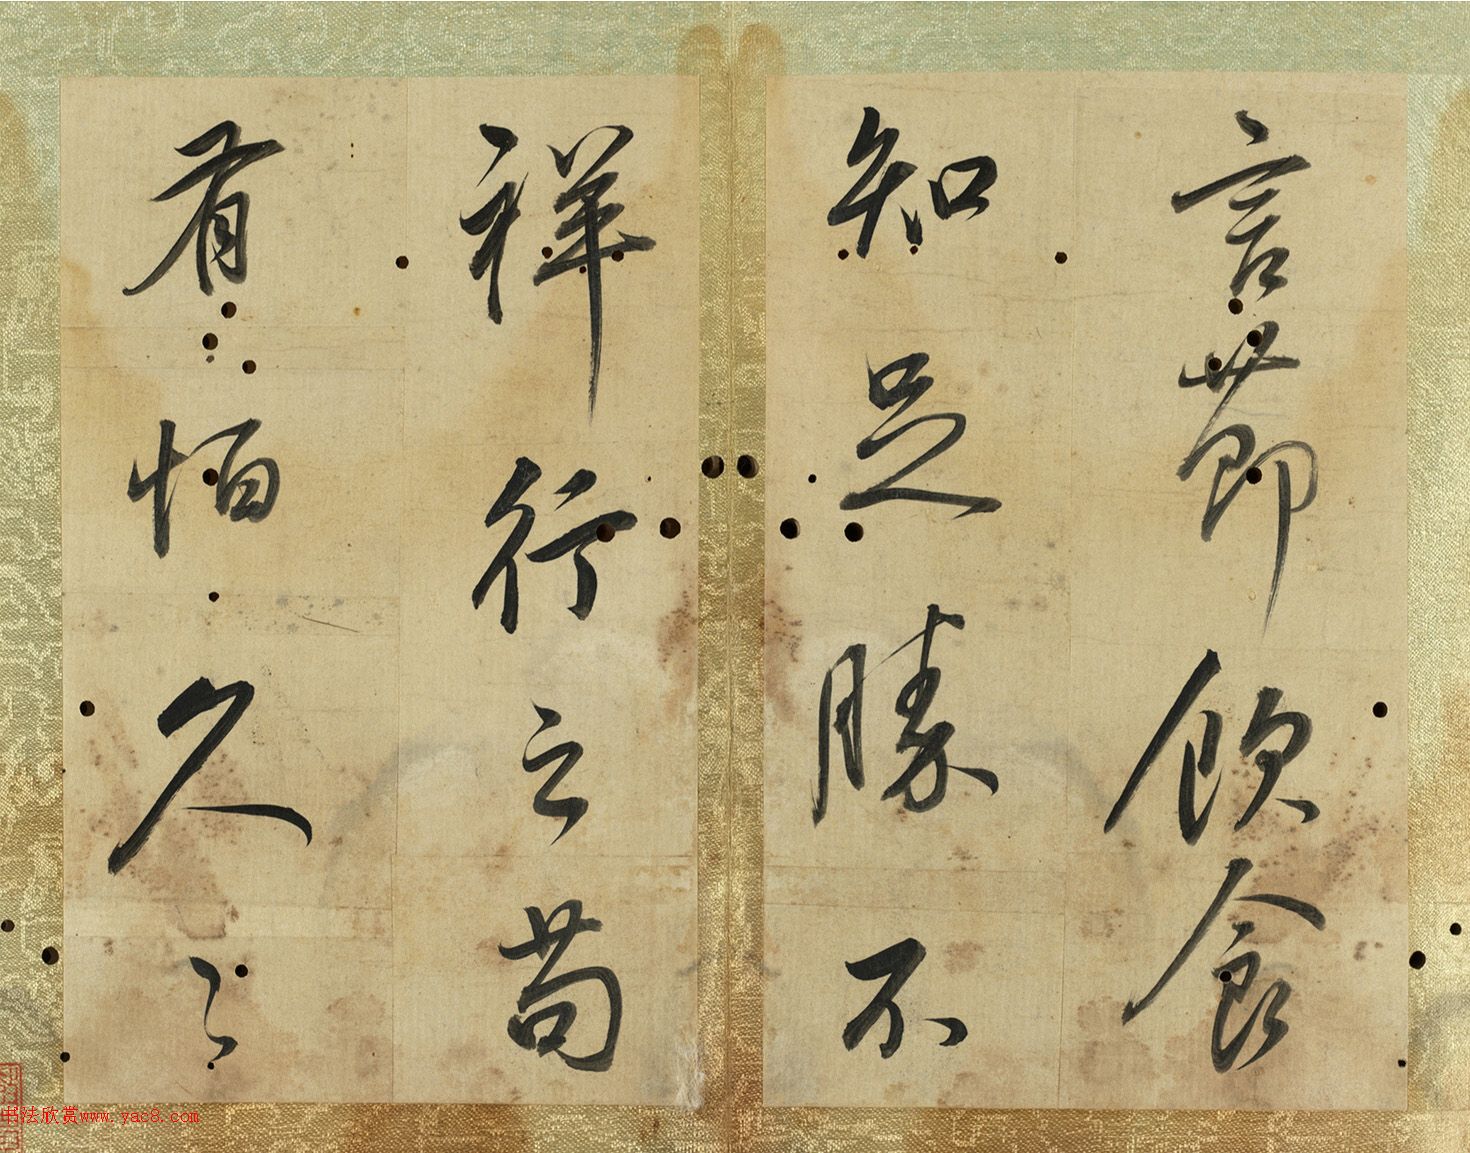 言節飲食
知足勝不
祥行之苟
有恒久々
书法欣赏www.yac8.com